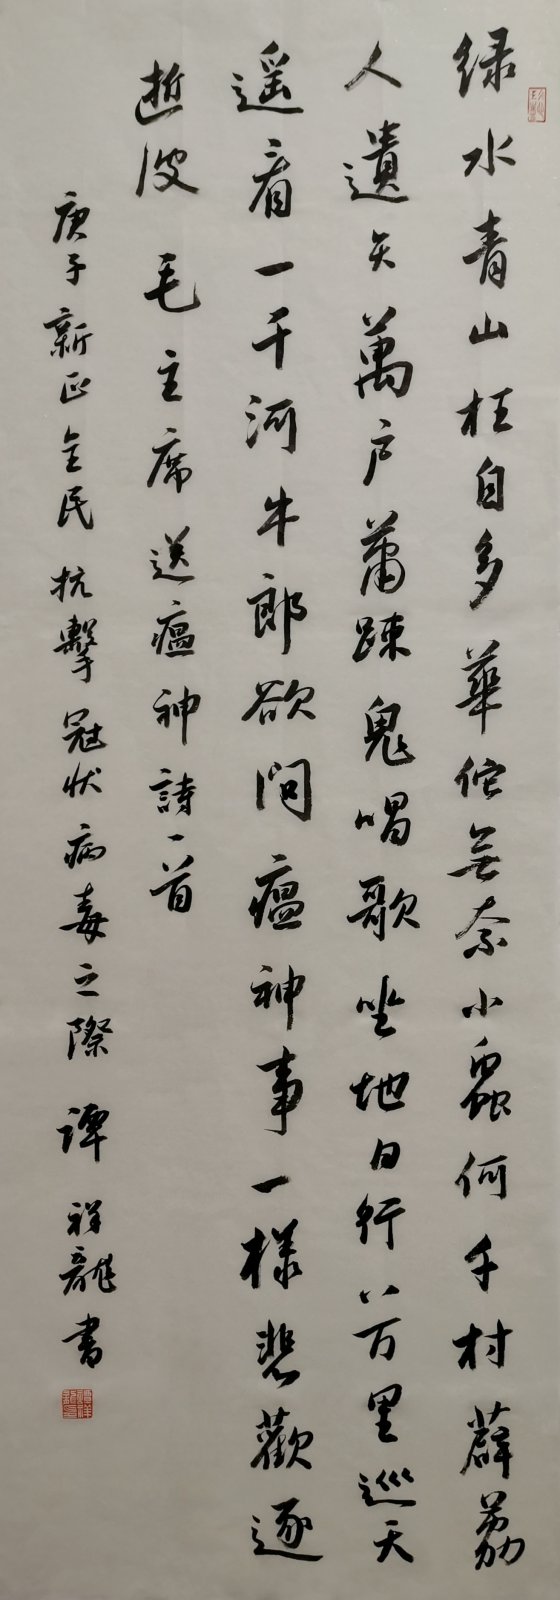 绿水青山枉自多華佗無奈小蟲何千村薜荔
人遺矢萬户蕭踈鬼唱歌坐地日行八万里巡天
遥看一千河牛郎欲問瘟神事一樣悲歡逐
逝波 毛主席送瘟神詩一首
庚子新正全民抗擊冠状病毒之際 譚祥龍書